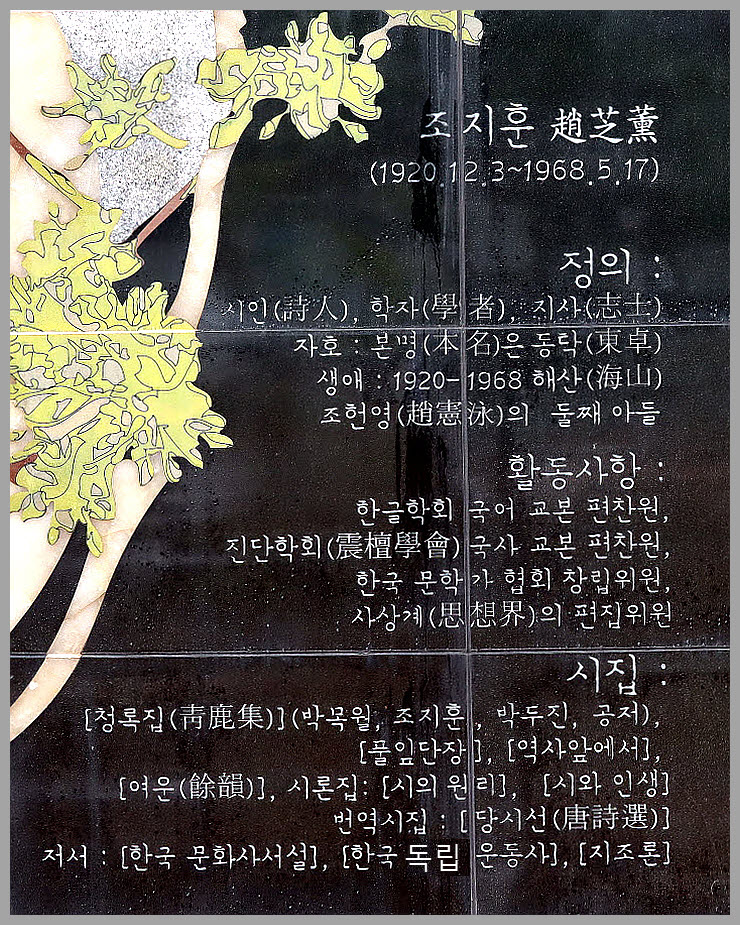 조지훈 趙芝薰
(1920.12.3~1968.5.17)
정의 :
시인(詩人), 학자(學者), 지사(志士)
자호 : 본명(本名)은 동탁(東卓)
생애 : 1920-1968 해산(海山)
조헌영(趙憲泳)의 둘째 아들
활동사항 :
한글학회 국어 교본 편찬원,
진단학회(震檀學會) 국사 교본 편찬원,
한국 문학가 협회 창립위원,
사상계(思想界)의 편집위원
시집 :
[청록집(靑鹿集)](박목월, 조지훈, 박두진, 공저),
[풀잎단장], [역사앞에서],
[여운(餘韻)], 시론집: [시의 원리], [시와 인생]
번역시집 : [당시선(唐詩選)]
저서 : [한국 문화사서설], [한국 독립 운동사], [지조론]